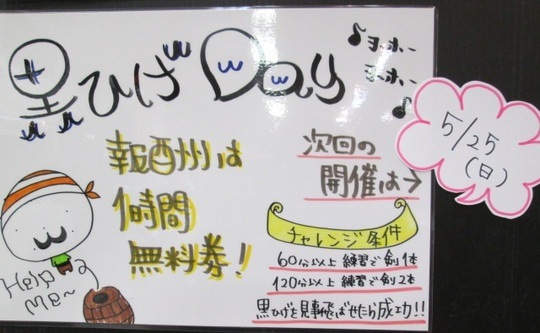 黒ひげDay
♪ヨーホー
ヨーホー♪
報酬は
1時間
無料券!
次回の
開催は→
5/25
(日)
チャレンジ条件
60分以上 練習で剣1本
120分以上 練習で剣2本
黒ひげを見事飛ばせたら成功!!
Help
Me~